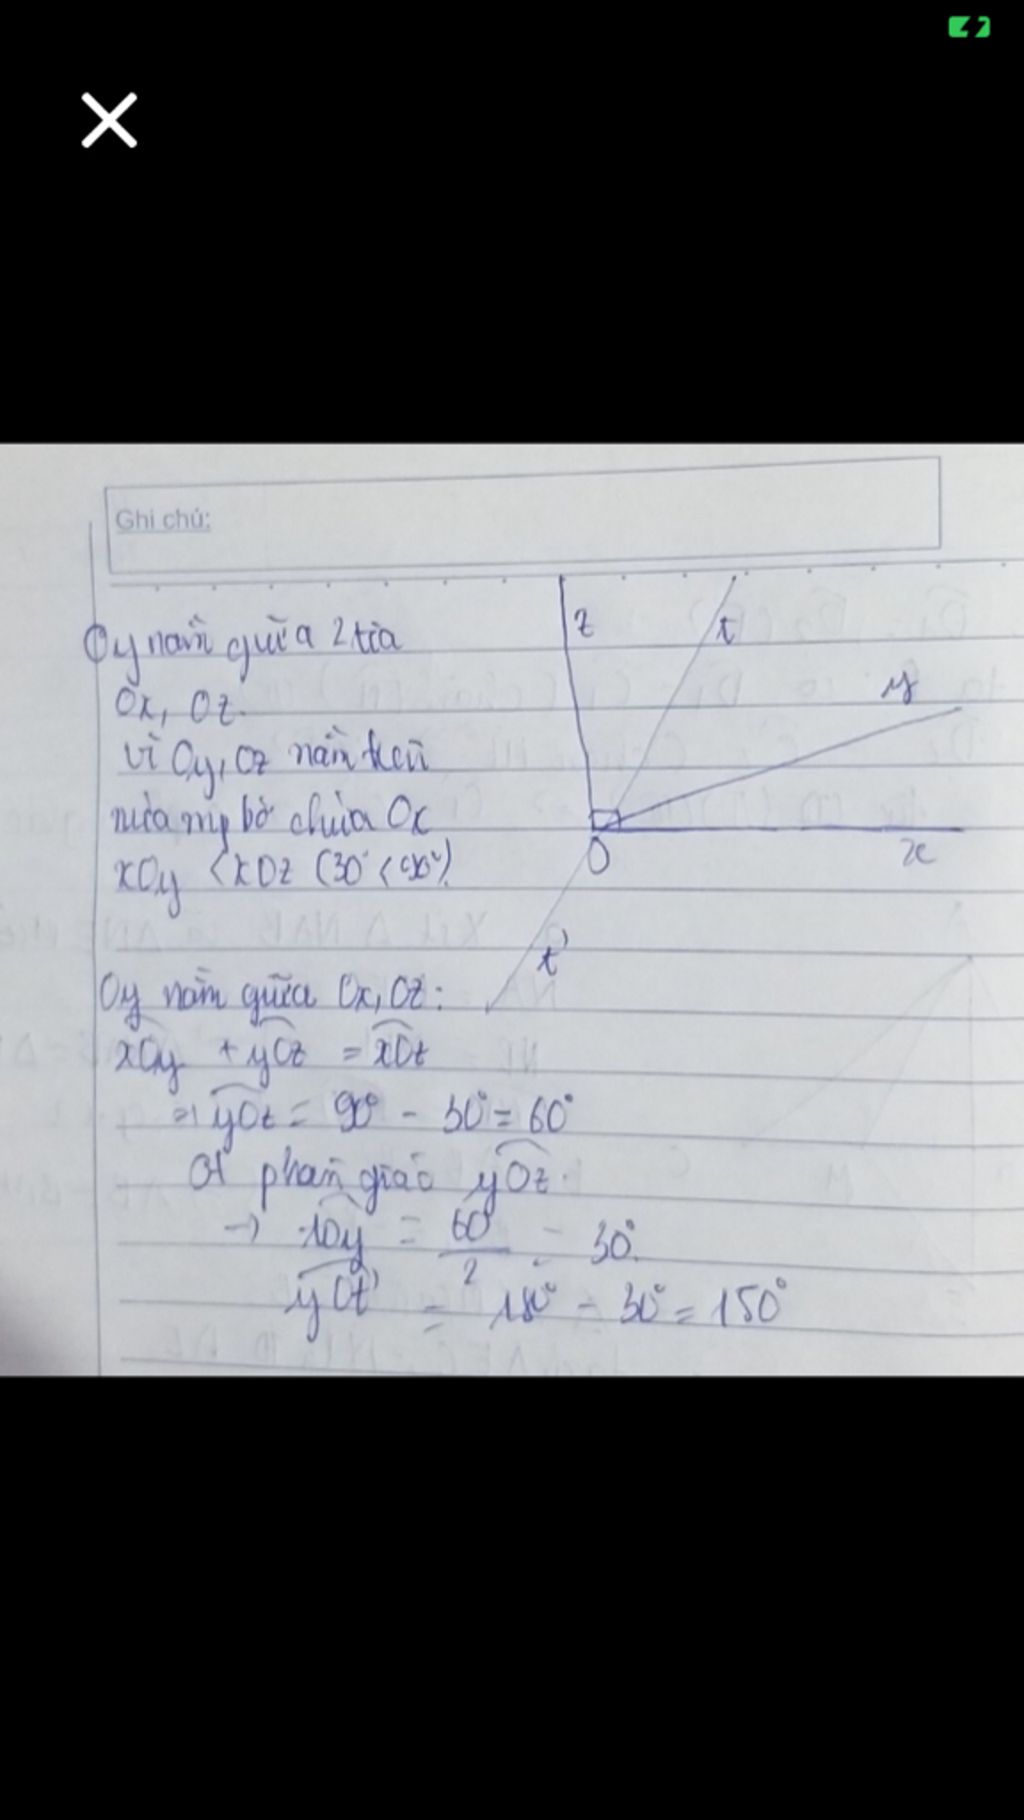 Ghi chú:
Oy nằm giữa 2 tia
Ox, Oz.
z
t
y
Vì Oy, Oz nằm trên
nửa mp bờ chứa Ox
xOy < xOz (30° < 90°).
O
x
t'
Oy nằm giữa Ox, Oz:
xOy + yOz = xOz
=> yOz = 90° - 30° = 60°
Ot phân giác yOz.
→ tOy = 60° / 2 = 30°.
yOt' = 180° - 30° = 150°